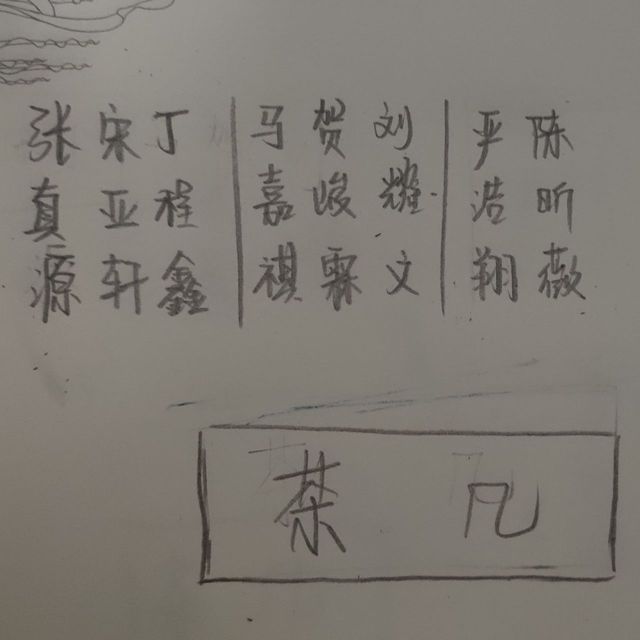 张真源
宋亚轩
丁程鑫
马嘉祺
贺峻霖
刘耀文
严浩翔
陈昕薇
茶几